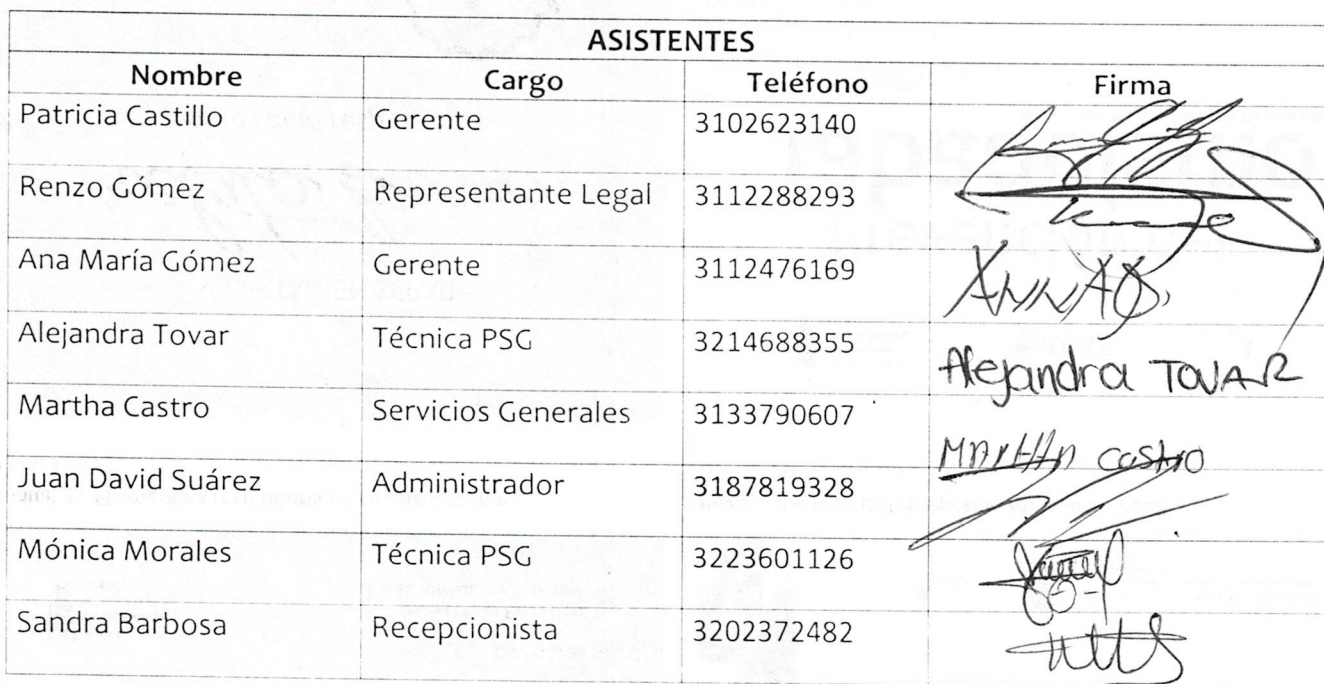 ASISTENTES
Nombre Cargo Teléfono Firma
Patricia Castillo Gerente 3102623140
Renzo Gómez Representante Legal 3112288293
Ana María Gómez Gerente 3112476169
Alejandra Tovar Técnica PSG 3214688355 Alejandra TOVAR
Martha Castro Servicios Generales 3133790607 Martha castro
Juan David Suárez Administrador 3187819328
Mónica Morales Técnica PSG 3223601126
Sandra Barbosa Recepcionista 3202372482